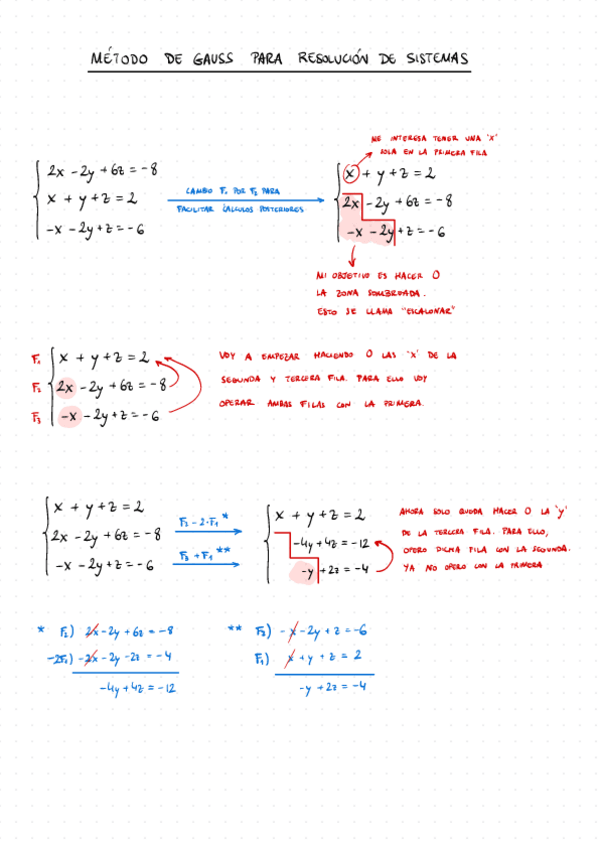 MÉTODO DE GAUSS PARA RESOLUCIÓN DE SISTEMAS
ME INTERESA TENER UNA 'X'
SOLA EN LA PRIMERA FILA
2x - 2y + 6z = -8
x + y + z = 2
-x - 2y + z = -6
CAMBIO F₁ POR F₂ PARA
FACILITAR CÁLCULOS POSTERIORES
x + y + z = 2
2x - 2y + 6z = -8
-x - 2y + z = -6
MI OBJETIVO ES HACER 0
LA ZONA SOMBREADA.
ESTO SE LLAMA "ESCALONAR"
F₁ x + y + z = 2
F₂ 2x - 2y + 6z = -8
F₃ -x - 2y + z = -6
VOY A EMPEZAR HACIENDO 0 LAS 'X' DE LA
SEGUNDA Y TERCERA FILA. PARA ELLO VOY
OPERAR AMBAS FILAS CON LA PRIMERA.
x + y + z = 2
2x - 2y + 6z = -8
-x - 2y + z = -6
F₂ - 2·F₁ *
F₃ + F₁ **
x + y + z = 2
-4y + 4z = -12
-y + 2z = -4
AHORA SOLO QUEDA HACER 0 LA 'y'
DE LA TERCERA FILA. PARA ELLO,
OPERO DICHA FILA CON LA SEGUNDA.
YA NO OPERO CON LA PRIMERA
* F₂) 2x - 2y + 6z = -8
-2F₁) -2x - 2y - 2z = -4
-4y + 4z = -12
** F₃) -x - 2y + z = -6
F₁) x + y + z = 2
-y + 2z = -4